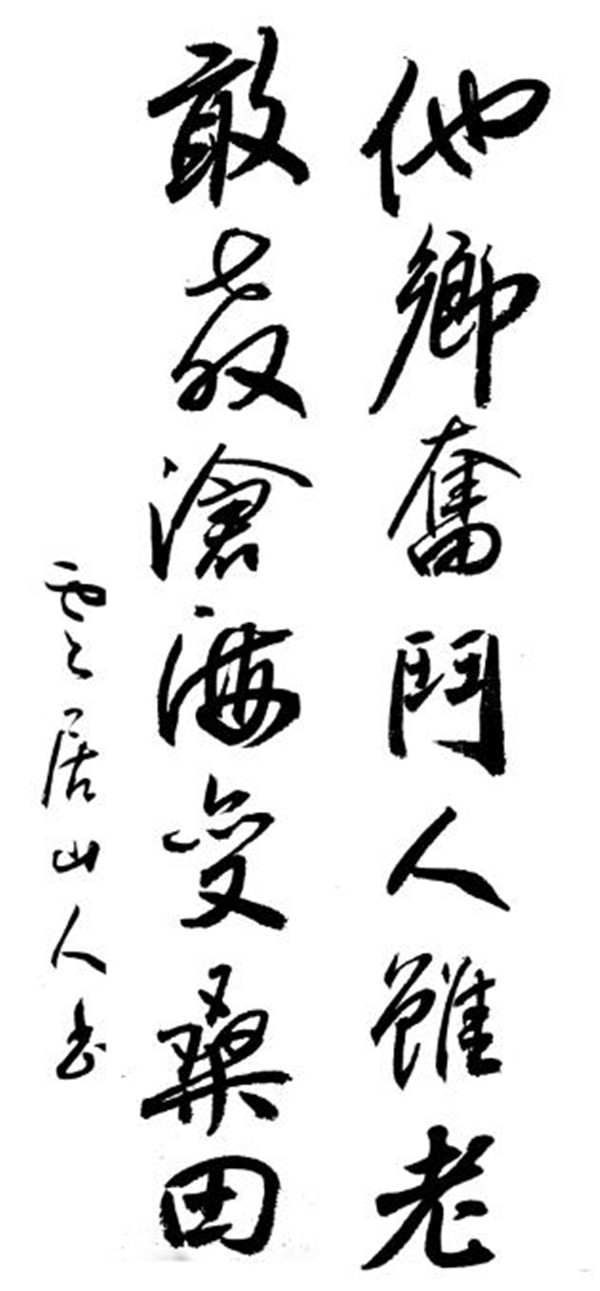 他鄉奮鬥人雖老
敢教滄海變桑田
雲居山人書